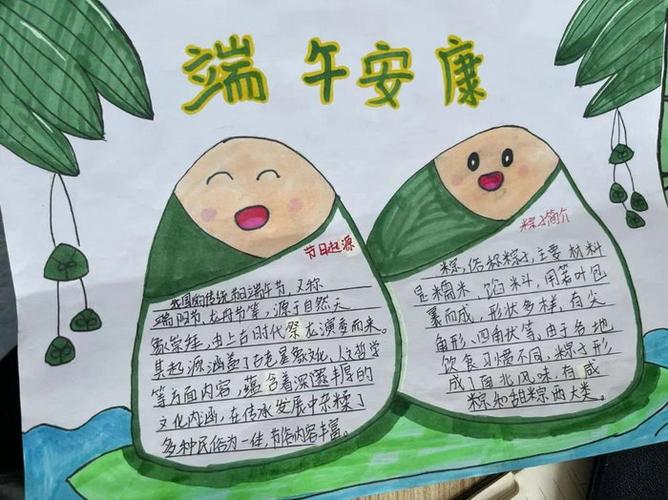 端午安康
节日起源
我国的传统节日端午节，又称
端阳节，龙舟节等，源于自然天
象崇拜，由上古时代祭龙演变而来。
其起源涵盖了古老星象文化，人文哲学
等方面内容，蕴含着深邃丰厚的
文化内涵，在传承发展中杂糅了
多种民俗为一体，节俗内容丰富。
粽子简介
粽，俗称粽子，主要材料
是糯米、馅料，用箬叶包
裹而成，形状多样，有尖
角形、四角状等。由于各地
饮食习惯不同，粽子形
成了南北风味，有咸
粽和甜粽两大类。